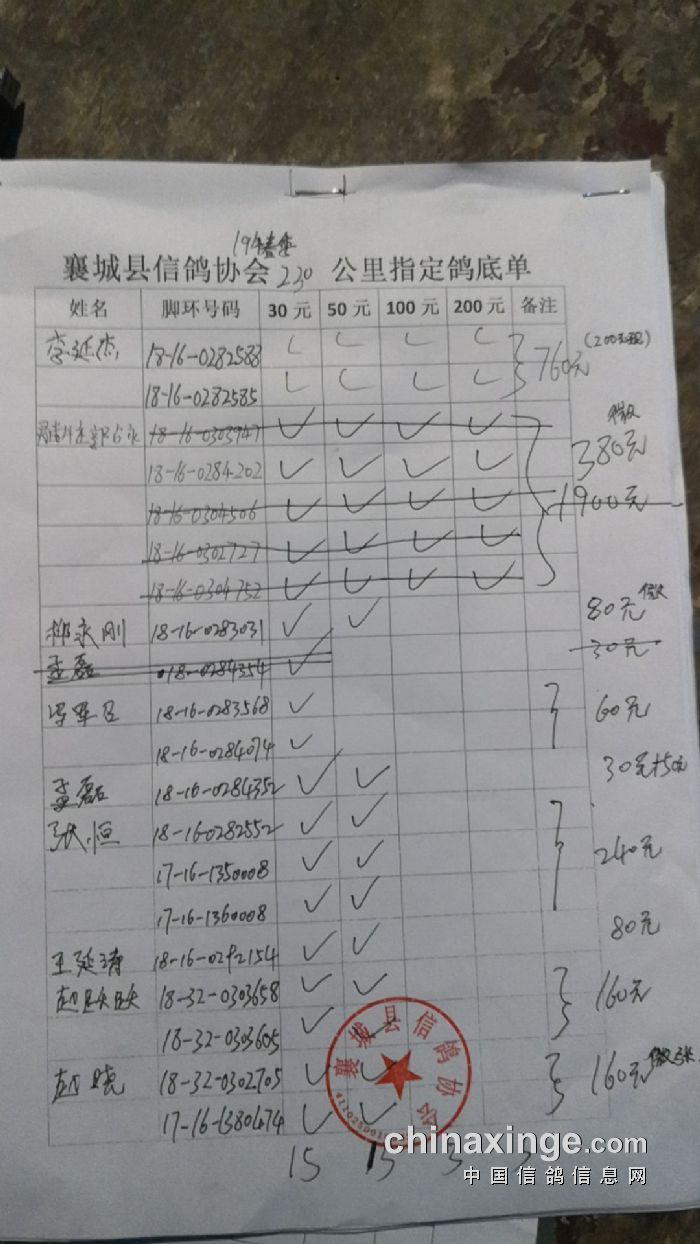 19年春季
襄城县信鸽协会 230 公里指定鸽底单
姓名 脚环号码 30元 50元 100元 200元 备注
李延杰 18-16-0282588 (200元现)
18-16-0282585 760元
18-16-0303947 微
18-16-0284202 380元
18-16-0304506 1900元
18-16-0302727
18-16-0304752
柳永刚 18-16-0283031 80元 微
孟磊 18-0284354 30元
18-16-0283568 60元
18-16-0284074
孟磊 18-16-0284352 30元+50元
张恒 18-16-0282552
17-16-1350008 240元
17-16-1360008
王延涛 18-16-0292154 80元
赵跃跃 18-32-0303658 160元
18-32-0303605
赵晓 18-32-0302705 160元 微张
17-16-1380474
襄城县信鸽协会
15 13 3 3
chinaxinge.com
中国信鸽信息网